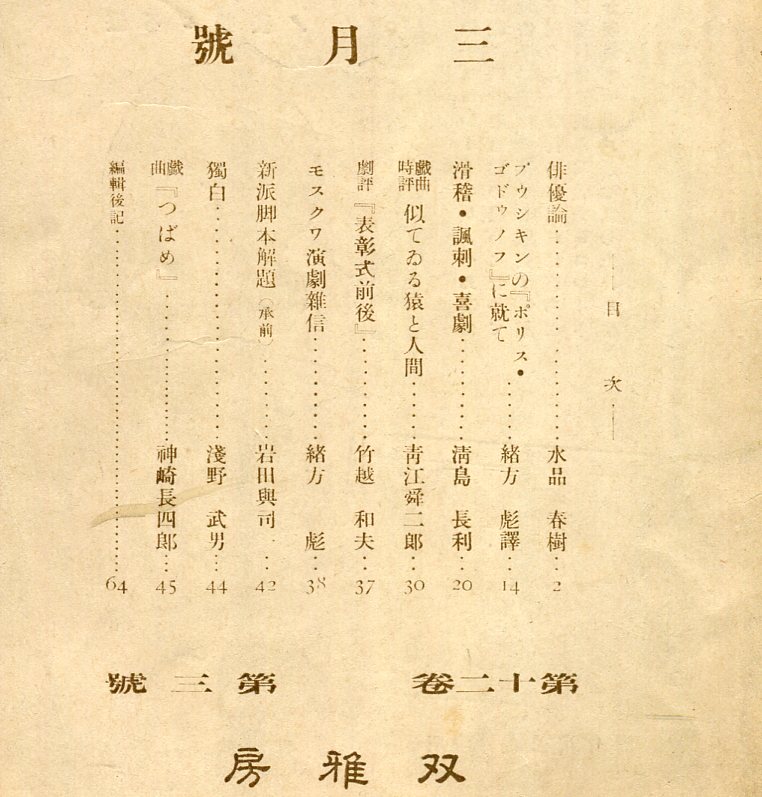 三月號
――目次――
俳優論……………………水品 春樹…2
プウシキンの『ボリス・
ゴドゥノフ』に就て……緒方 彪譯…14
滑稽・諷刺・喜劇…………淸島 長利…20
戲曲時評 似てゐる猿と人間……靑江舜二郎…30
劇評『表彰式前後』…………竹越 和夫…37
モスクワ演劇雜信……………緒方 彪…38
新派脚本解題(承前)…………岩田與司一…42
獨白……………………淺野 武男…44
戲曲『つばめ』………………神崎長四郎…45
編輯後記………………………………64
第十二卷 第三號
双雅房